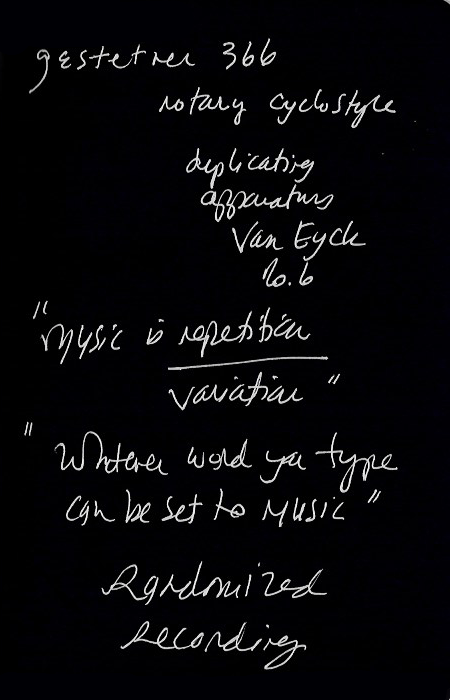 gestetner 366
rotary cyclostyle
duplicating
apparatus
Van Eyck
10.6
"Music is repetition
variation"
"Whatever word you type
can be set to music"
Randomized
Recording